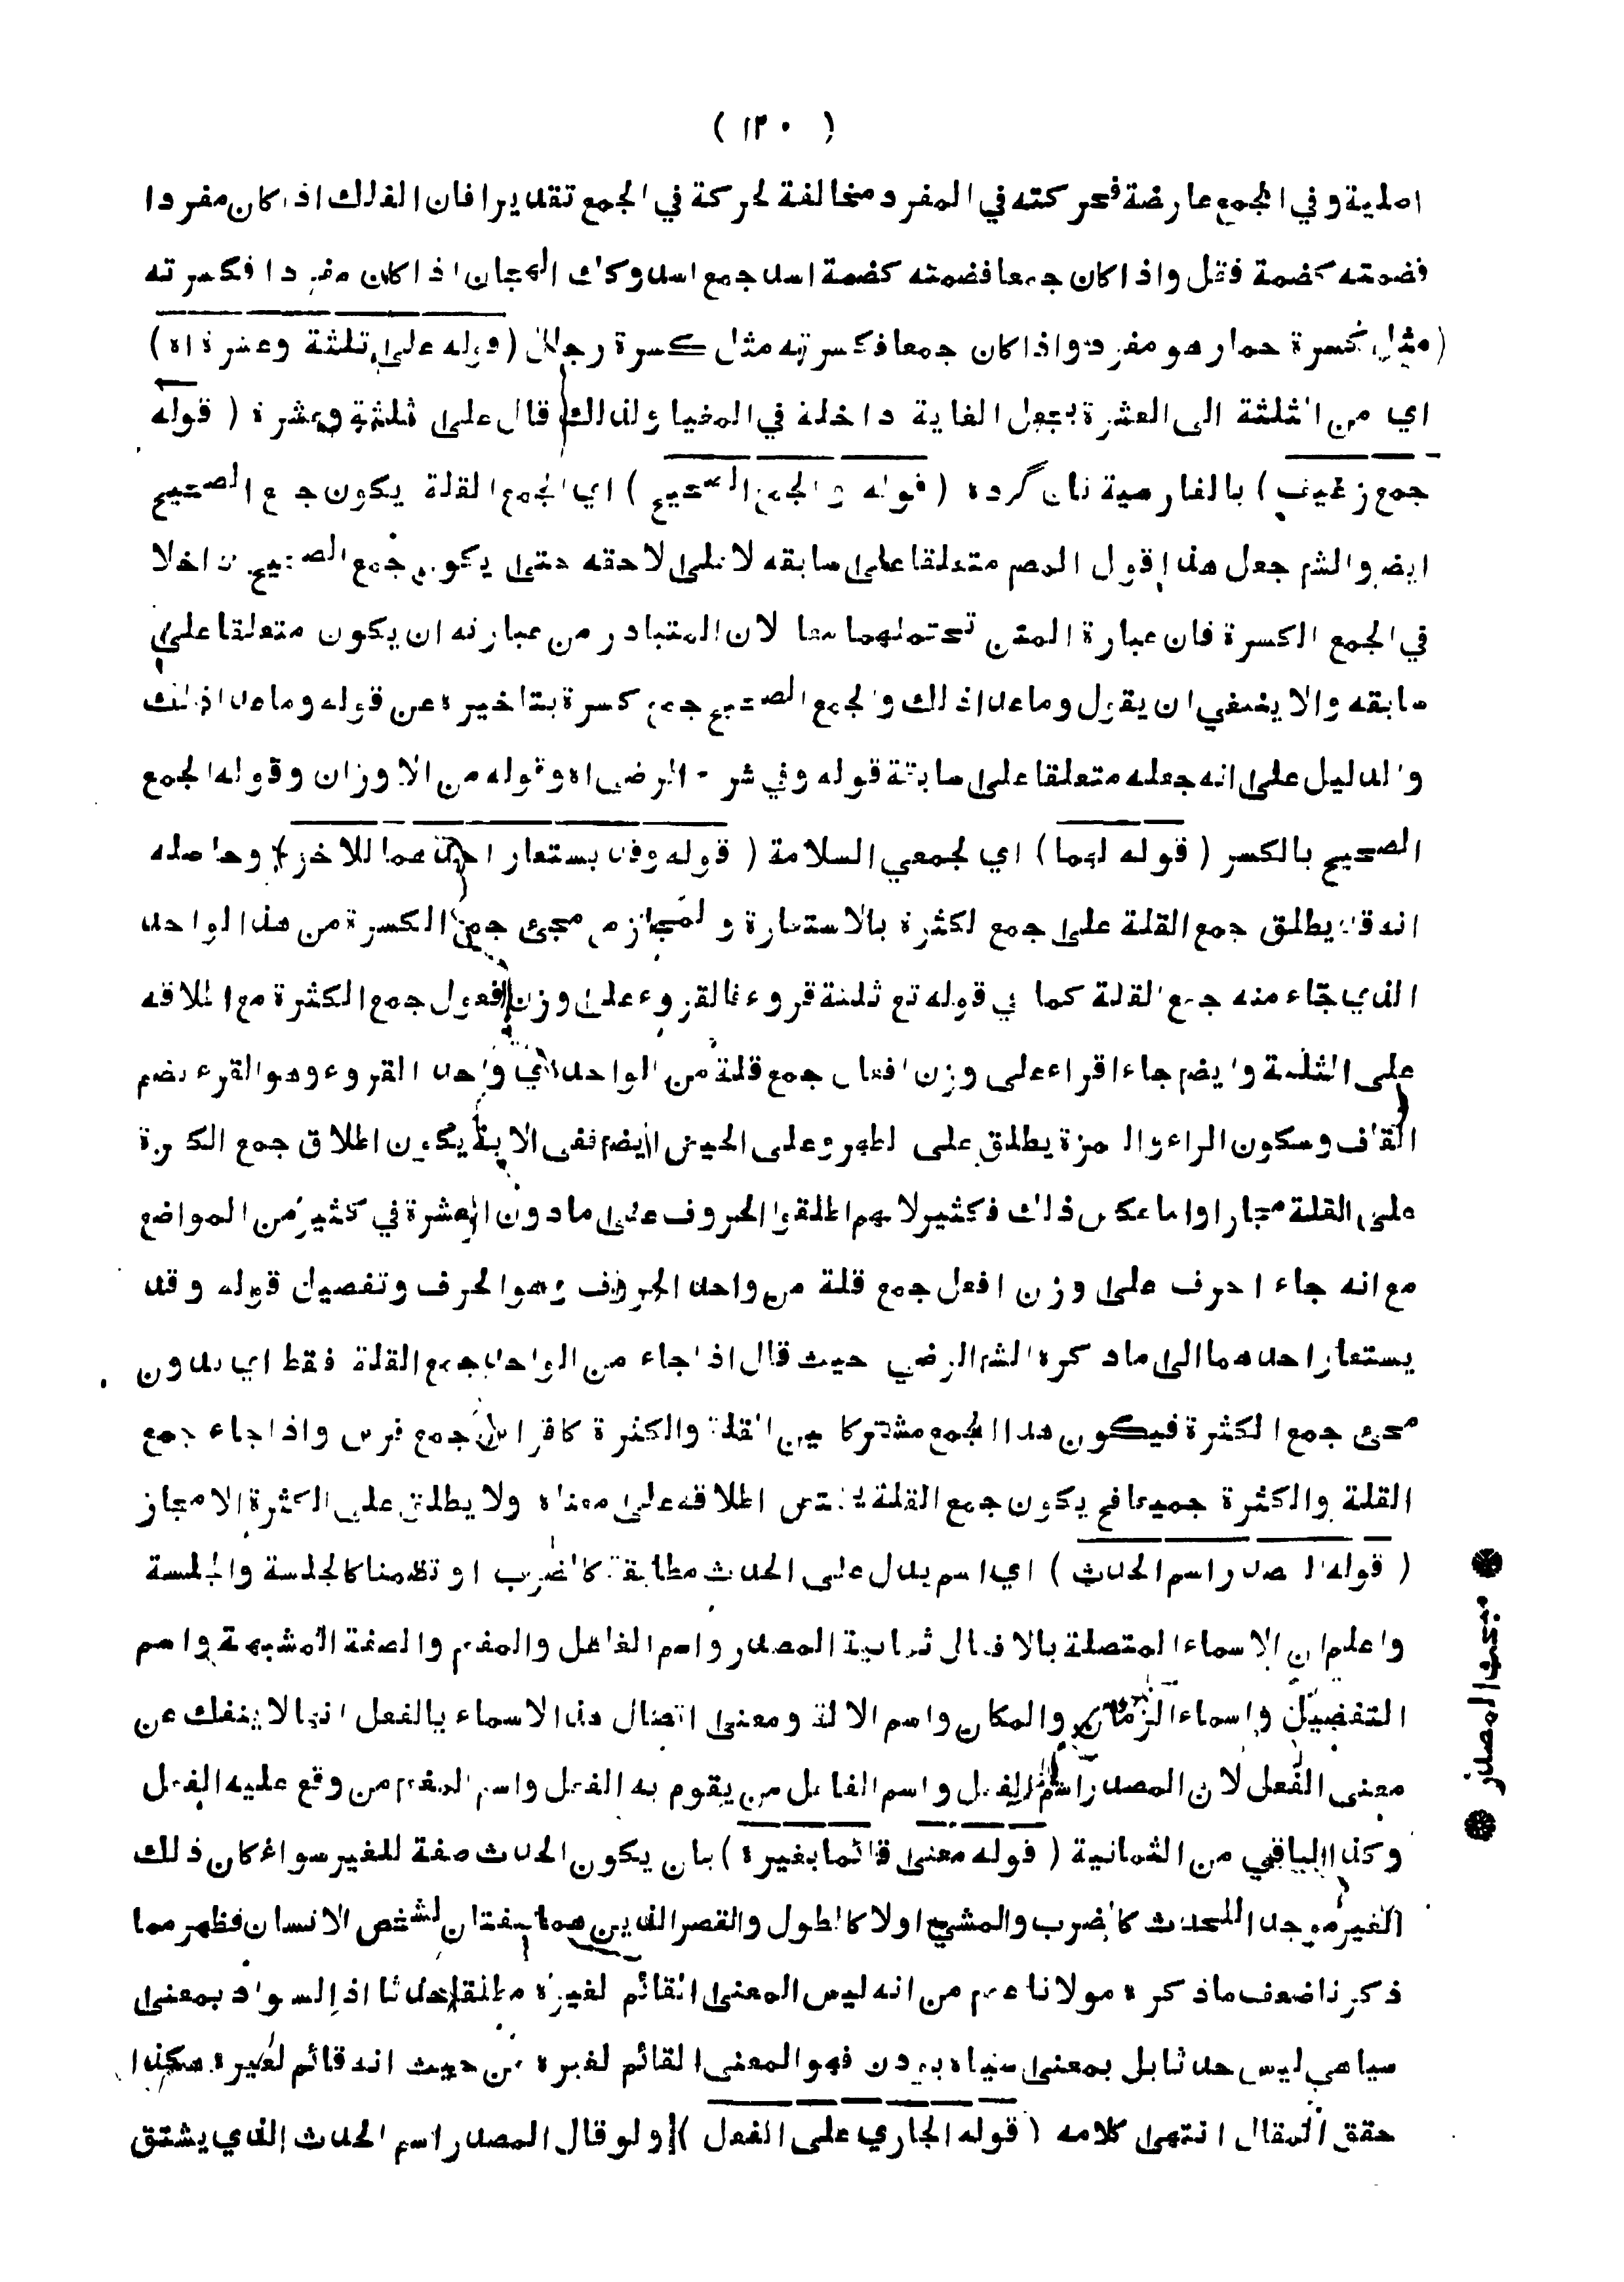 ( ١٢٠ )
اصلية وفي الجمع عارضة فحركته في المفرد مخالفة لحركة في الجمع تقديرا فان الفلك اذا كان مفردا
فضمته كضمة قفل واذا كان جمعا فضمته كضمة اسد جمع اسد وكذا الهجان اذا كان مفردا فكسرته
(مثل كسرة حمار هو مفرد واذا كان جمعا فكسرته مثل كسرة رجال (قوله على ثلثة وعشرة اه)
اي من الثلثة الى العشرة بجعل الغاية داخلة في المغيا ولذالك قال على ثلثة وعشرة ( قوله
جمع رغيف ) بالفارسية نان گرده ( قوله والجمع الصحيح ) اي الجمع القلة يكون جمع الصحيح
ايضو الشم جعل هذا قول المصم متعلقا على سابقه لا على لاحقه حتى يكون جمع الصحيح داخلا
في الجمع الكسرة فان عبارة المتن تحتملهما معا لان المتبادر من عبارته ان يكون متعلقا على
سابقه والا ينبغي ان يقول وما عدا ذلك والجمع الصحيح جمع كسرة بتاخيره عن قوله وما عدا ذلك
والدليل على انه جعله متعلقا على سابقة قوله وفي شرح الرضي اه وقوله من الاوزان وقوله الجمع
الصحيح بالكسر ( قوله لهما ) اي لجمعي السلامة ( قوله وقد يستعار احدهما للاخر ) وحاصله
انه قد يطلق جمع القلة على جمع لكثرة بالاستعارة و لمجاز مع مجئ جمع الكسرة من هذا الواحد
الذي جاء منه جمع القلة كما في قوله تع ثلثة قروء فالقروء على وزن الفعول جمع الكثرة مع اطلاقه
على الثلثة وايضم جاء اقراء على وزن افعال جمع قلة من الواحد اي واحد القروء وهو القرء بضم
القاف وسكون الراء والهمزة يطلق على لطهر وعلى الحيض ايضم ففي الاية يكون اطلاق جمع الكثرة
على القلة مجازا واما عكس ذلك فكثير لانهم اطلقوا الحروف على مادون العشرة في كثير من المواضع
مع انه جاء احرف على وزن افعل جمع قلة من واحد الحروف وهو الحرف وتفصيل قوله وقد
يستعار احدهما الى ماذكره الشم الرضي حيث قال اذا جاء من الواحد جمع القلة فقط اي بدون
مجئ جمع الكثرة فيكون هذا الجمع مشتركا بين القلة والكثرة كافراس جمع فرس واذا جاء جمع
القلة والكثرة جميعا فح يكون جمع القلة يختص اطلاقه على معناه ولا يطلق على الكثرة الا مجاز
( قوله المصدر اسم الحدث ) اي اسم يدل على الحدث مطابقة كالضرب او تضمنا كالجلسة والجلسة
واعلم ان الاسماء المتصلة بالافعال ثمانية المصدر واسم الفاعل والمفعم والصفة المشبهة واسم
التفضيل واسماء الزمان والمكان واسم الالة ومعنى اتصال هذه الاسماء بالفعل انها لا ينفك عن
معنى الفعل لان المصدر اسم الفعل واسم الفاعل من يقوم به الفعل واسم المفعم من وقع عليه الفعل
وكذا الباقي من الثمانية ( قوله معنى قائما بغيره ) بان يكون الحدث صفة للغير سواء كان ذلك
الغير موجدا للحدث كالضرب والمشي اولا كالطول والقصر الذين هما صفتان لشخص الانسان فظهر مما
ذكرنا ضعف ماذكره مولانا عصم من انه ليس المعنى القائم لغيره مطلقا حدثا اذ السواد بمعنى
سياهي ليس حدثا بل بمعنى سياه بودن فهو المعنى القائم لغيره من حيث انه قائم لغيره هكذا
حقق المقال انتهى كلامه ( قوله الجاري على الفعل ) ولو قال المصدر اسم الحدث الذي يشتق
مبحث المصدر